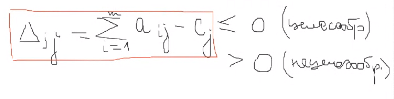 Δ_{ij} = \sum_{i=1}^{m} a_{ij} - c_j ≤ 0 (целесообр)
> 0 (нецелесообр.)